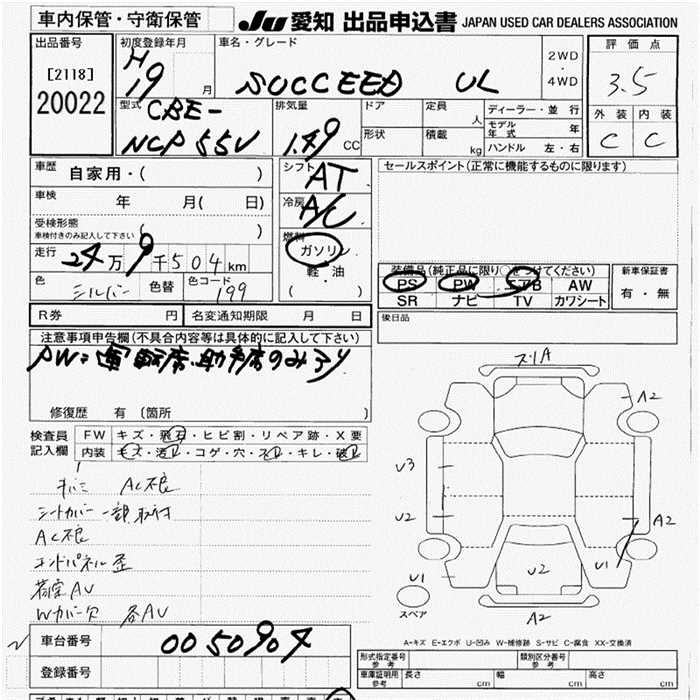 車内保管・守衛保管
JU 愛知 出品申込書 JAPAN USED CAR DEALERS ASSOCIATION
出品番号
[2118]
20022
初度登録年月
H
19 月
車名・グレード
SUCCEED UL
2WD
・
4WD
評価点
3.5
外装 内装
C C
型式 CBE-
NCP55V
排気量
1.49 CC
ドア
形状
定員
人
積載
kg
ディーラー・並行
モデル
年式 年
ハンドル 左・右
車歴
自家用・( )
車検
年 月( 日)
受検形態
車検付きのみ記入して下さい ( )
走行
24万9千504km
色
シルバー
色替
色コード
199
シフト
AT
冷房
A/C
燃料
ガソリン
軽・油
( )
セールスポイント(正常に機能するものに限ります)
装備品(純正品に限り○をつけてください)
PS PW エアB AW
SR ナビ TV カワシート
新車保証書
有・無
後日品
R券 円 名変通知期限 月 日
注意事項申告欄(不具合内容等は具体的に記入して下さい)
PW=運転席、助手席のみアリ
修復歴 有 〔箇所 〕
検査員
記入欄
FW キズ・飛石・ヒビ割・リペア跡・X要
内装 キズ・汚レ・コゲ・穴・スレ・キレ・破レ
AC不良
シートカバー一部取付
AC不良
エンドパネル歪
荷室AU
Wカバー欠 各AU
車台番号 0050904
登録番号
スリA
A2
U3
U2
A2
U1
U2
U1
A2
スペア
A-キズ E-エクボ U-凹み W-補修跡 S-サビ C-腐食 XX-交換済
形式指定番号
参考
類別区分番号
参考
車庫証明用
参考
長さ cm 幅 cm 高さ cm